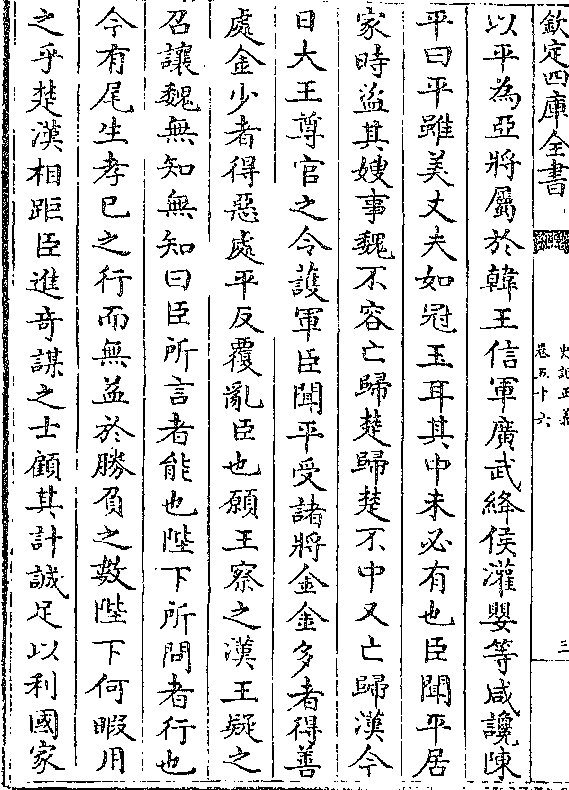 欽定四庫全書
史記正義
卷五十六
三
以平為亞將屬於韓王信軍廣武絳侯灌嬰等咸讒陳
平曰平雖美丈夫如冠玉耳其中未必有也臣聞平居
家時盜其嫂事魏不容亡歸楚歸楚不中又亡歸漢今
日大王尊官之令護軍臣聞平受諸將金金多者得善
處金少者得惡處平反覆亂臣也願王察之漢王疑之
召讓魏無知無知曰臣所言者能也陛下所問者行也
今有尾生孝巳之行而無益於勝負之數陛下何暇用
之乎楚漢相距臣進奇謀之士顧其計誠足以利國家